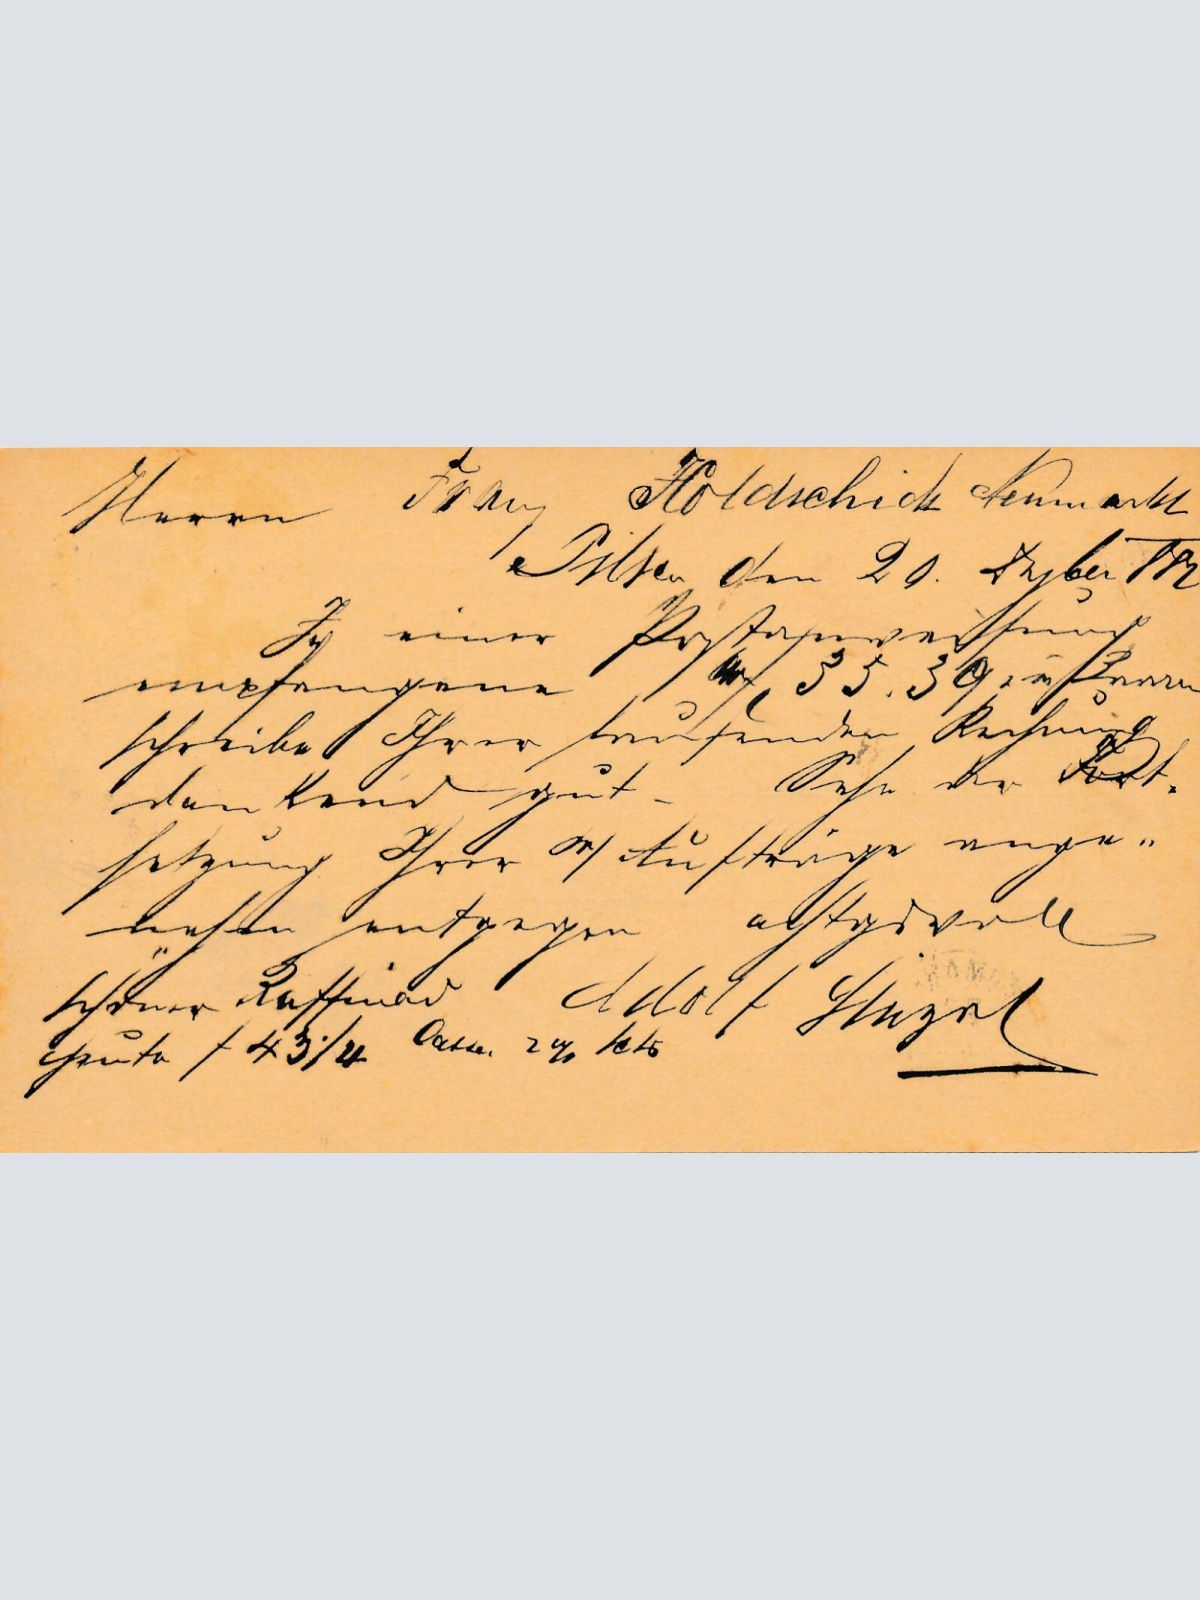 Herrn Franz Holdschick Neumarkt
Pilsen den 20. Dezber
In einer Postanweisung
empfangene f 35.39 in Baarem
schreibe Ihrer laufenden Rechnung
dankend gut – Sehe der Fort-
setzung Ihrer Aufträge ange"
nehm entgegen achtgsvoll
schöner Raffinad Adolf
heute f 43 1/4 Cassa 2%